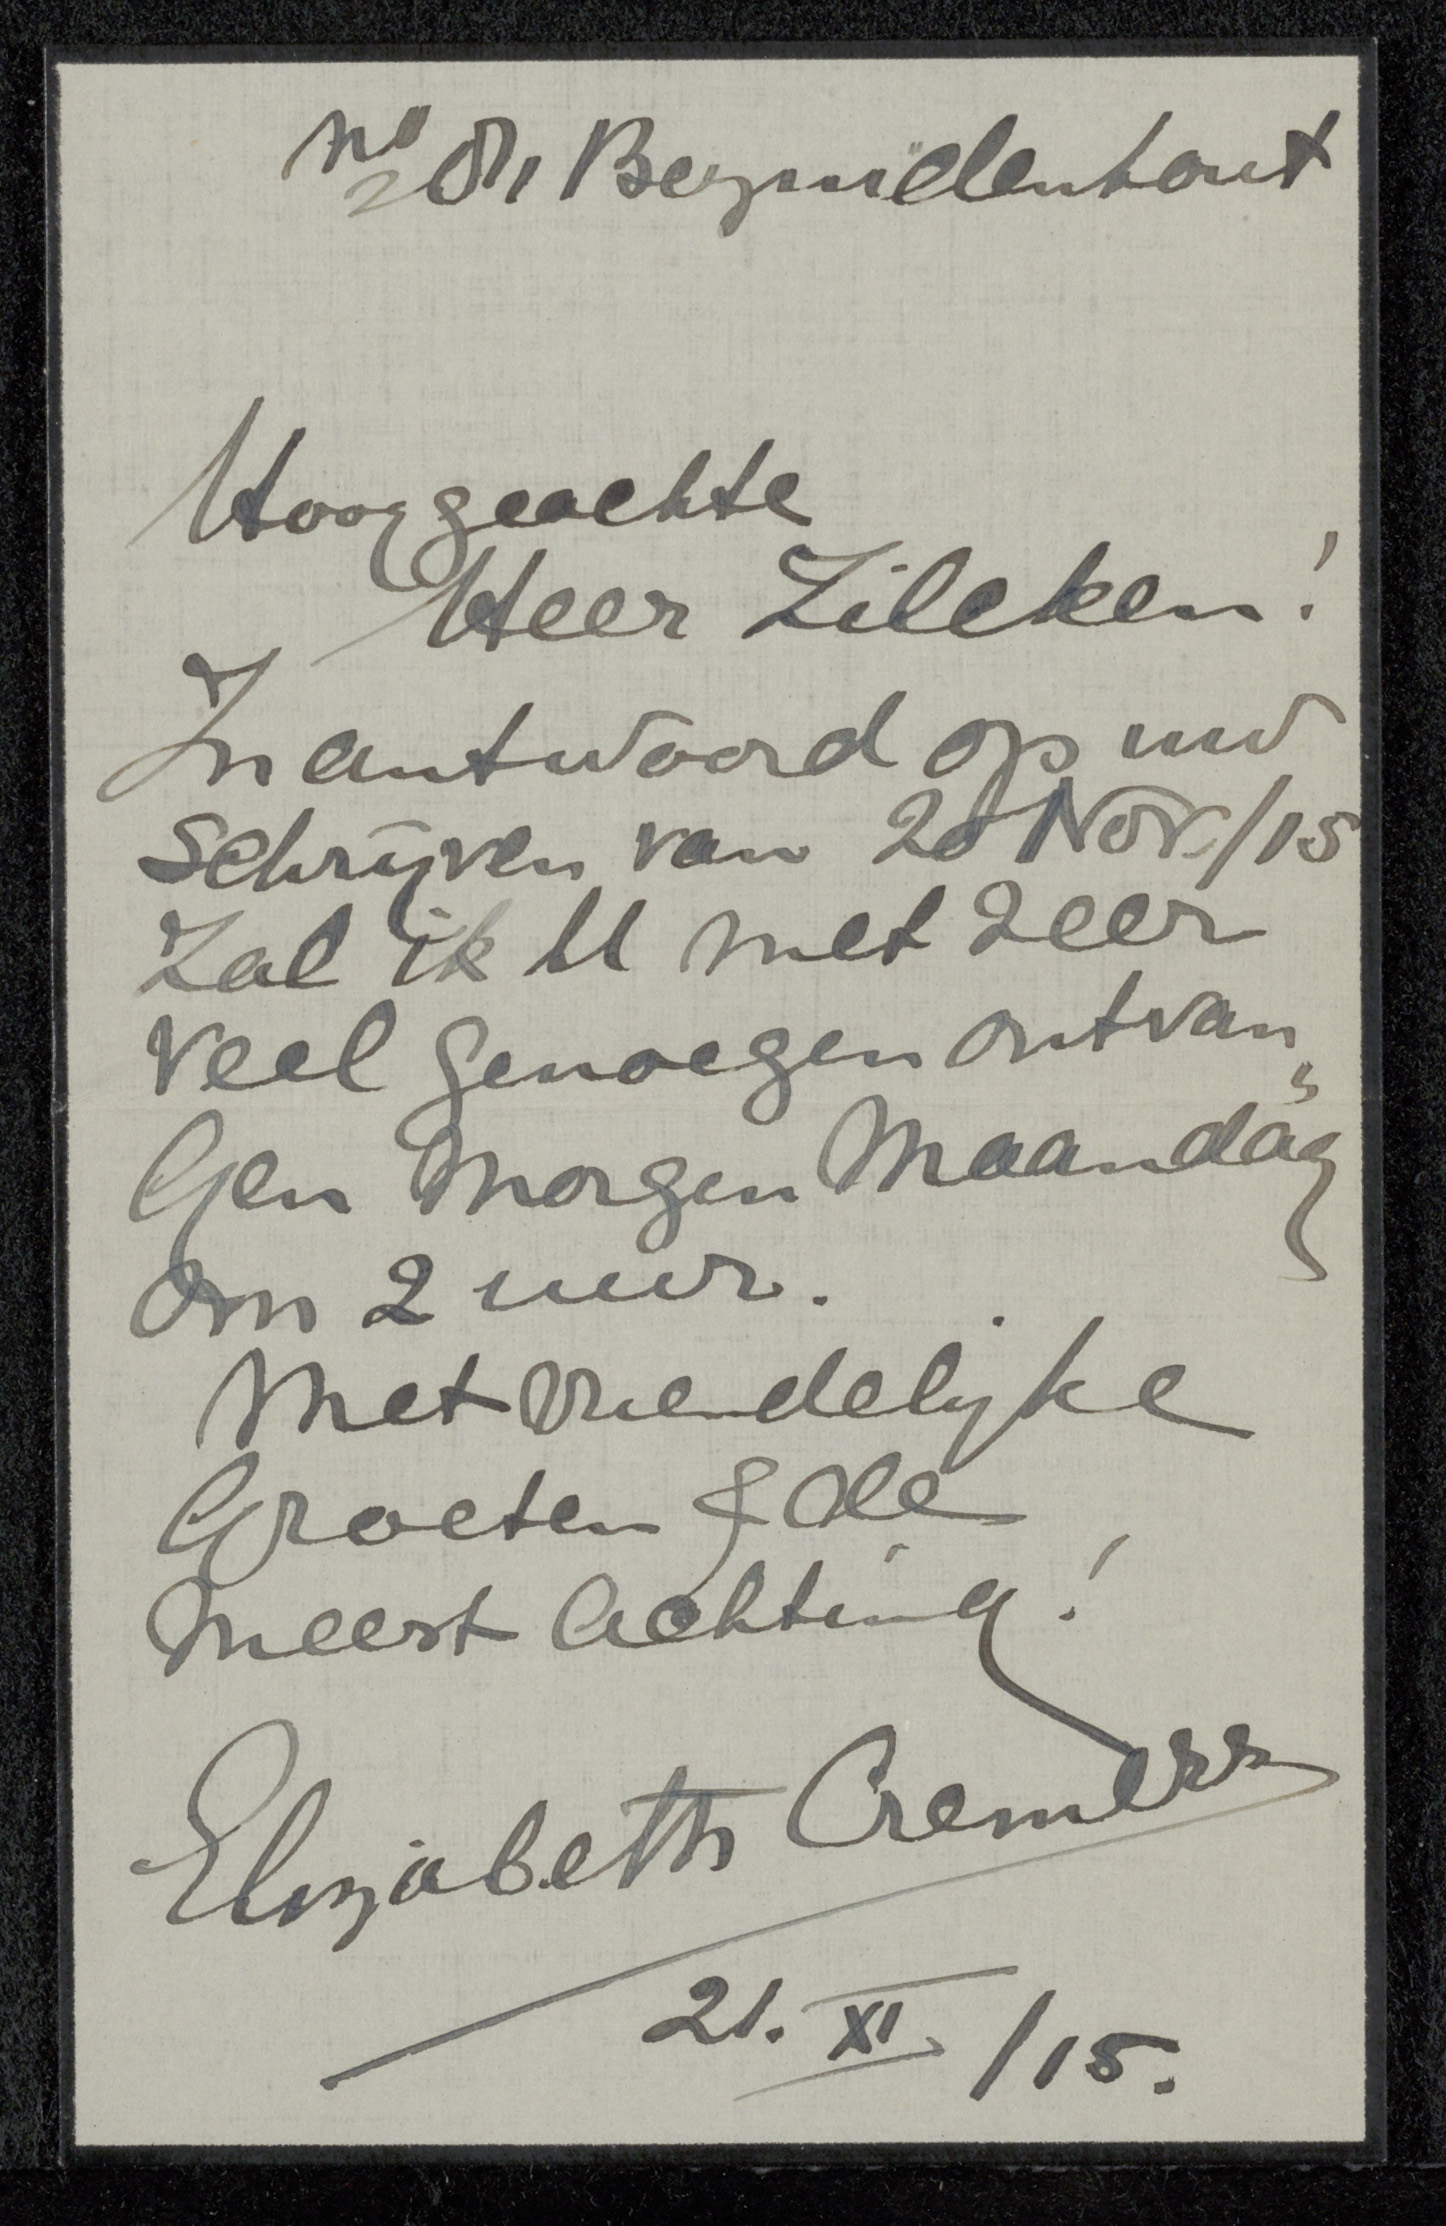 Bezuidenhout
Hooggeachte
Heer Zilcken!
In antwoord op uw
schrijven van 20 Nov./15
Zal ik U met zeer
veel genoegen ontvan„
Gen morgen Maandag
om 2 uur.
Met vriendelijke
Groeten & de
meest Achting!
Elizabeth Cremers
21. XI /15.